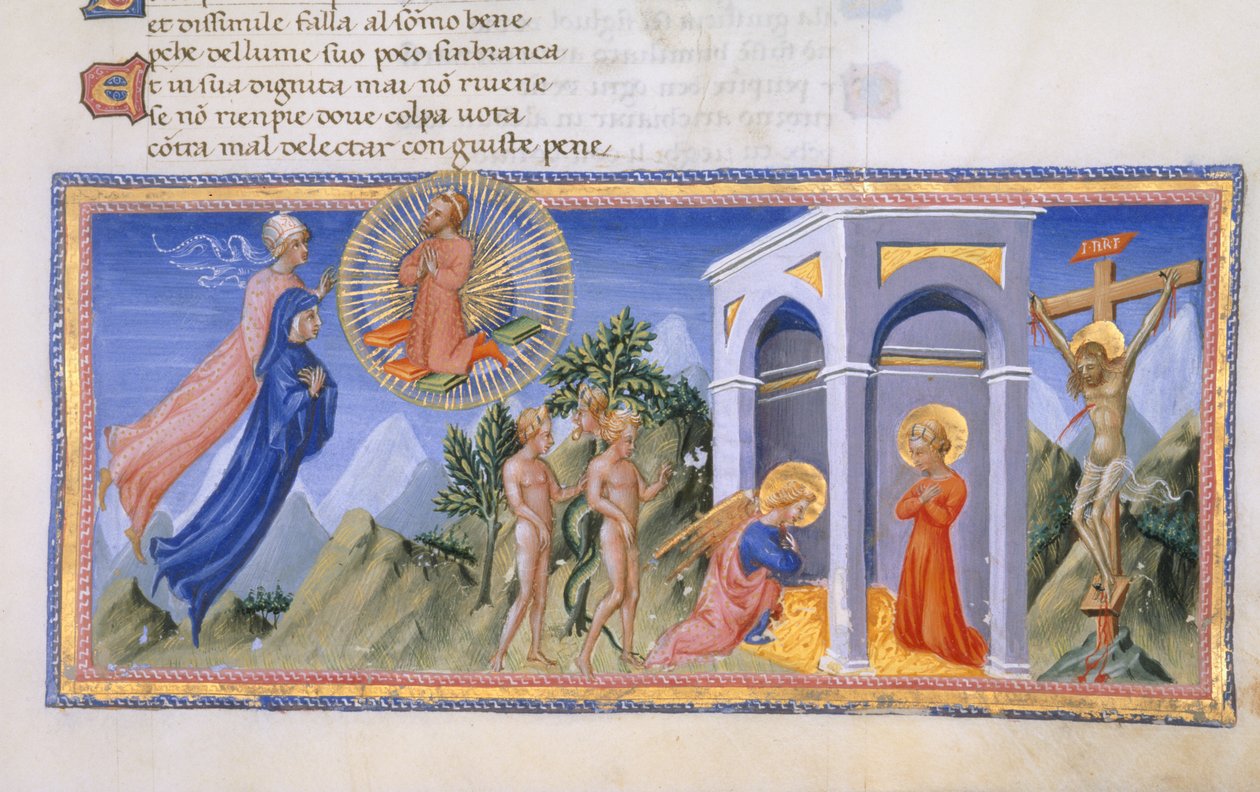 et dissimile falla al sōmo bene
pche dellume suo poco sinbranca
Et in sua dignita mai nō rivene
se nō rienpie dove colpa vota
cōtra mal delectar con giuste pene
I·NRI